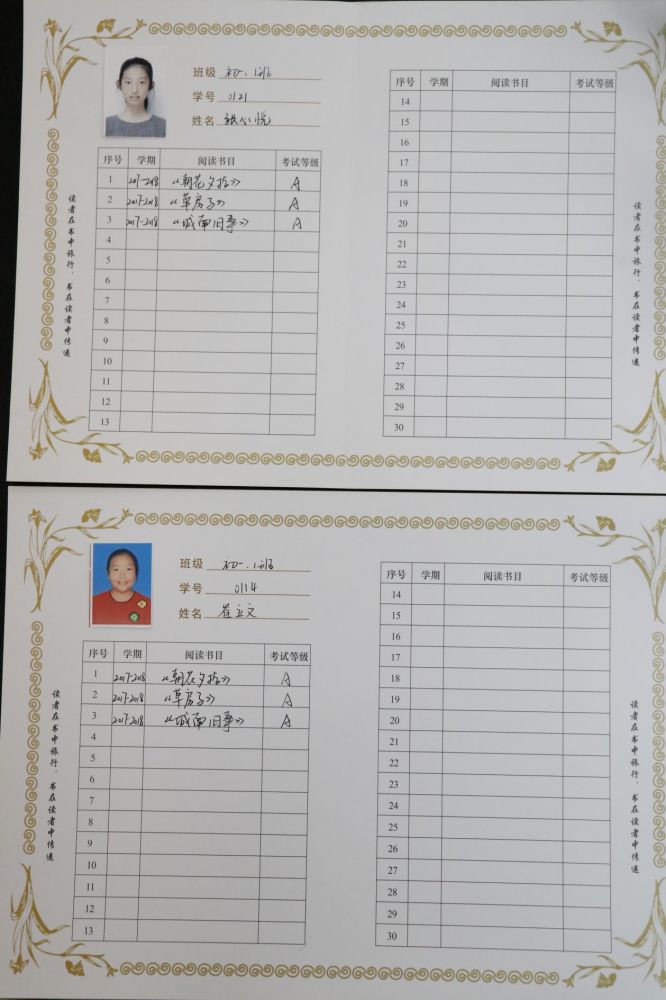 班级 初一.1班
学号 0121
姓名 张小悦
序号 学期 阅读书目 考试等级
1 2017-2018 《朝花夕拾》 A
2 2017-2018 《草房子》 A
3 2017-2018 《城南旧事》 A
4
5
6
7
8
9
10
11
12
13
序号 学期 阅读书目 考试等级
14
15
16
17
18
19
20
21
22
23
24
25
26
27
28
29
30
读者在书中旅行，书在读者中传递
读者在书中旅行，书在读者中传递
班级 初一.1班
学号 0114
姓名 崔立文
序号 学期 阅读书目 考试等级
1 2017-2018 《朝花夕拾》 A
2 2017-2018 《草房子》 A
3 2017-2018 《城南旧事》 A
4
5
6
7
8
9
10
11
12
13
序号 学期 阅读书目 考试等级
14
15
16
17
18
19
20
21
22
23
24
25
26
27
28
29
30
读者在书中旅行，书在读者中传递
读者在书中旅行，书在读者中传递